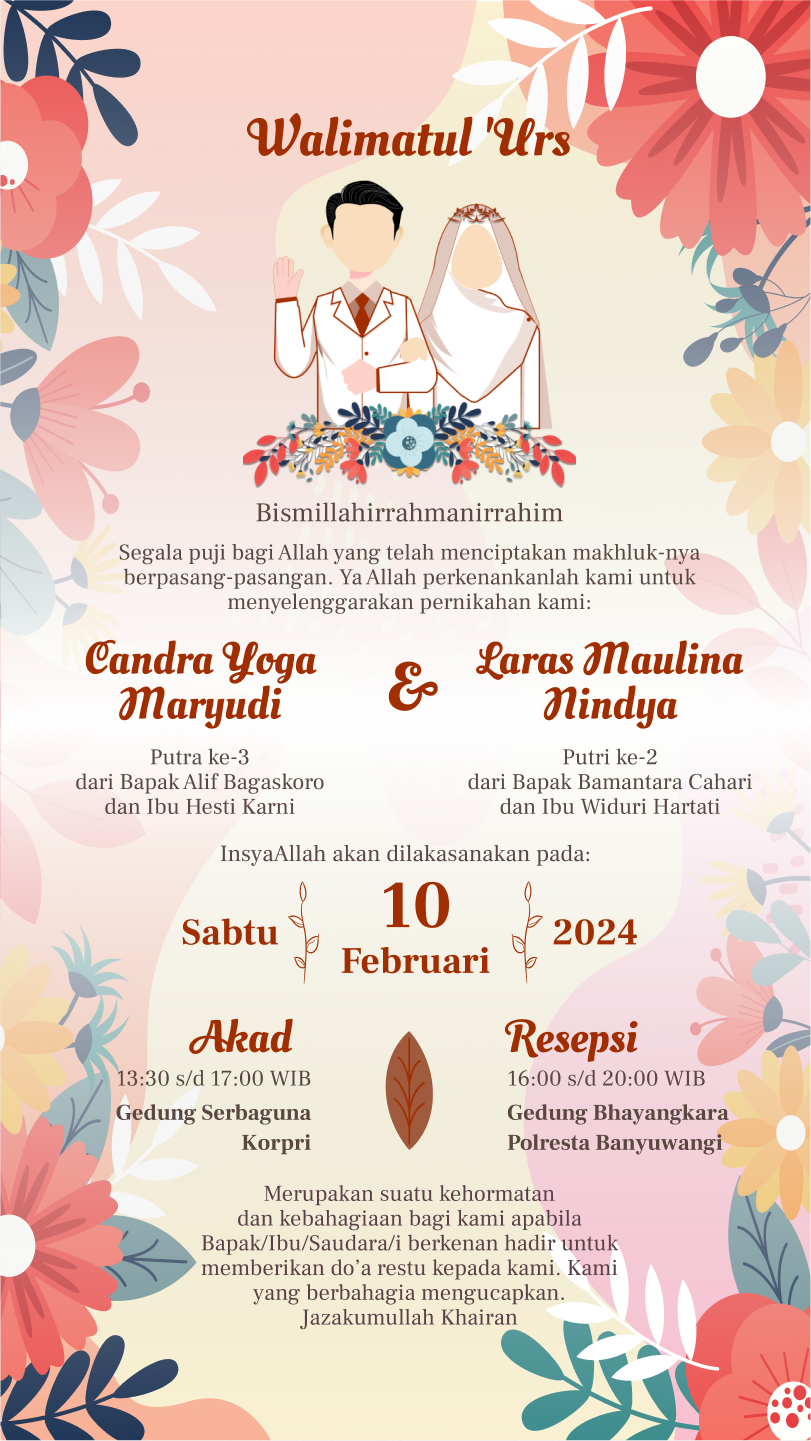 Walimatul 'Urs
Bismillahirrahmanirrahim
Segala puji bagi Allah yang telah menciptakan makhluk-nya
berpasang-pasangan. Ya Allah perkenankanlah kami untuk
menyelenggarakan pernikahan kami:
Candra Yoga
Maryudi
&
Laras Maulina
Nindya
Putra ke-3
dari Bapak Alif Bagaskoro
dan Ibu Hesti Karni
Putri ke-2
dari Bapak Bamantara Cahari
dan Ibu Widuri Hartati
InsyaAllah akan dilakasanakan pada:
Sabtu
10
Februari
2024
Akad
13:30 s/d 17:00 WIB
Gedung Serbaguna
Korpri
Resepsi
16:00 s/d 20:00 WIB
Gedung Bhayangkara
Polresta Banyuwangi
Merupakan suatu kehormatan
dan kebahagiaan bagi kami apabila
Bapak/Ibu/Saudara/i berkenan hadir untuk
memberikan do’a restu kepada kami. Kami
yang berbahagia mengucapkan.
Jazakumullah Khairan